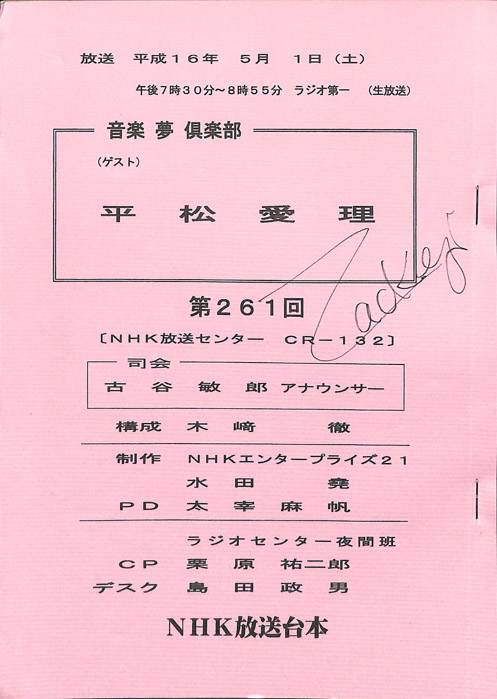 放送 平成16年 5月 1日(土)
午後7時30分~8時55分 ラジオ第一 (生放送)
音楽 夢 倶楽部
(ゲスト)
平松愛理
Zackey
第261回
[NHK放送センター CR-132]
司会
古谷敏郎 アナウンサー
構成 木﨑 徹
制作 NHKエンタープライズ21
水田 堯
PD 太宰麻帆
ラジオセンター夜間班
CP 栗原 祐二郎
デスク 島田政男
NHK放送台本